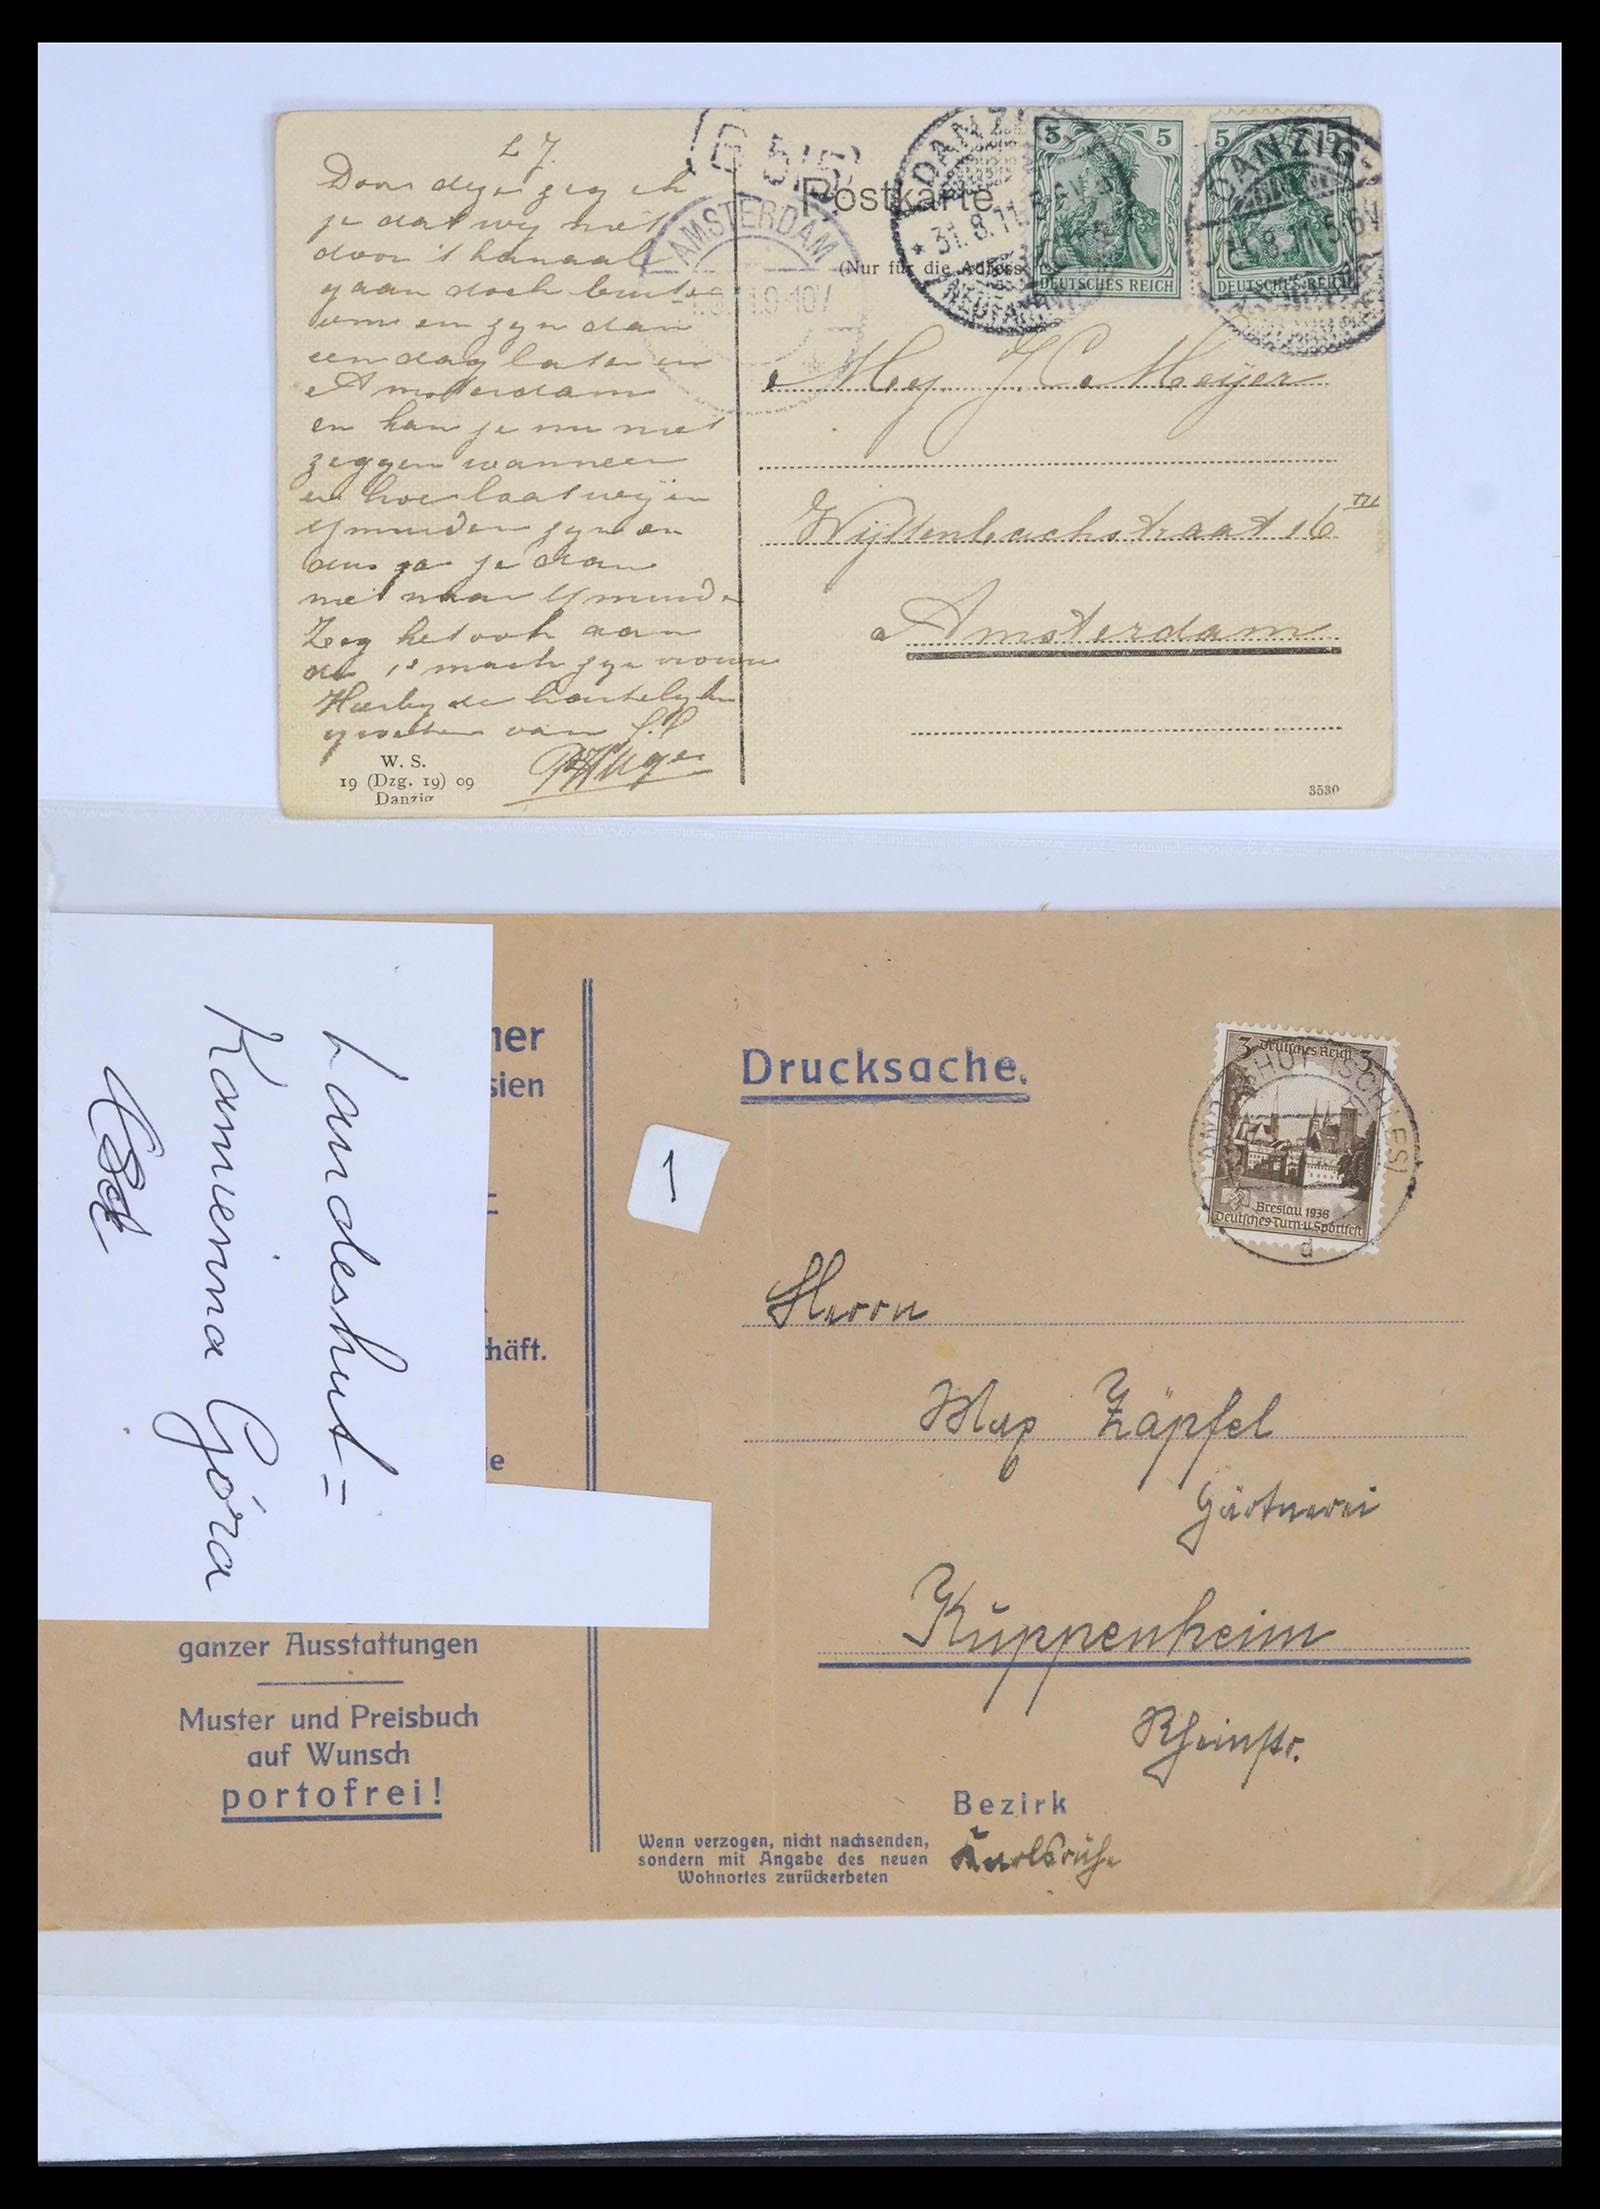 L J.
Door deze zeg ik
je dat wij niet
door 't kanaal
gaan doch buiten
om en zyn dan
een dag later in
Amsterdam
en kan je nu niet
zeggen wanneer
en hoe laat wij in
Ymuiden zyn en
dus ga je dan
niet naar Ymuide
Zeg het ook aan
de 1e mach zyn vrouw
Hierby de hartelyke
groeten van
W. S.
19 (Dzg. 19) 09
Danzig
Postkarte
(Nur für die Adresse
AMSTERDAM
DANZIG
31.8.11
NEUFAHR
5 5
DEUTSCHES REICH
5 5
DEUTSCHES REICH
DANZIG
Mej. J C Meijer
Wijttenbachstraat 16 III
Amsterdam
3530
Landeshut =
Kamienna Góra
her
sien
häft.
e
ganzer Ausstattungen
Muster und Preisbuch
auf Wunsch
portofrei!
1
Drucksache.
3 Deutsches Reich 3
Breslau 1938
Deutsches Turn-u.Sportfest
d
Herrn
Max Zäpfel
Gärtnerei
Kuppenheim
Rheinstr.
Bezirk
Karlsruhe
Wenn verzogen, nicht nachsenden,
sondern mit Angabe des neuen
Wohnortes zurückerbeten